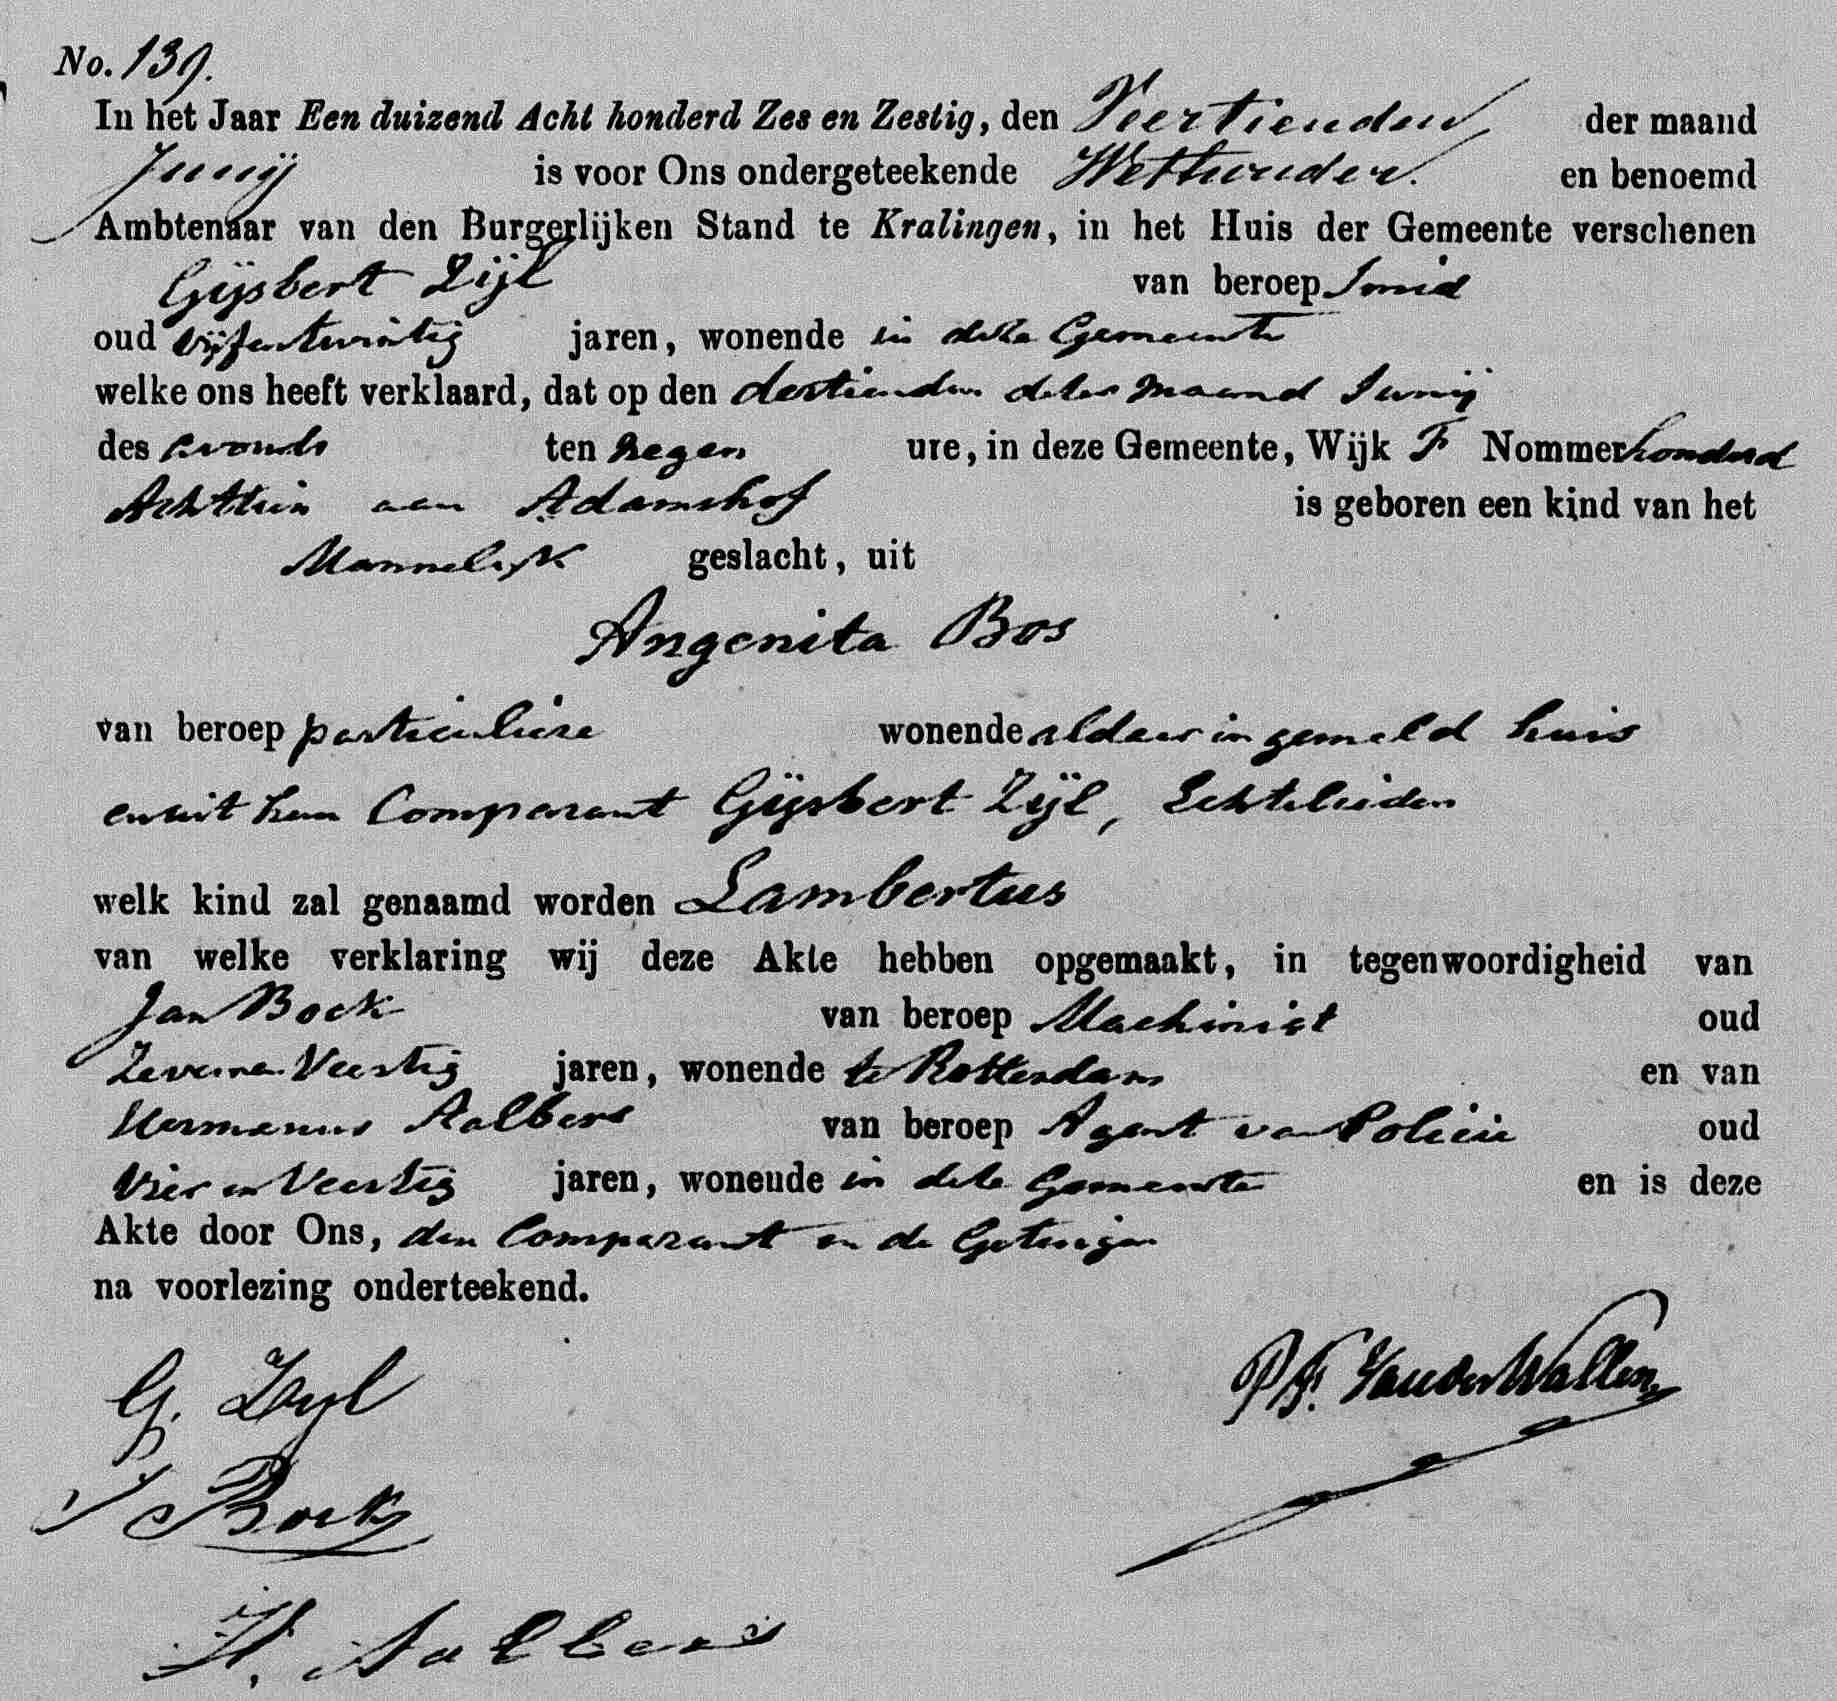 No. 139.
In het Jaar Een duizend Acht honderd Zes en Zestig, den Veertienden der maand
Junij is voor Ons ondergeteekende Wethouder en benoemd
Ambtenaar van den Burgerlijken Stand te Kralingen, in het Huis der Gemeente verschenen
Gijsbert Zijl van beroep Smid
oud vijfentwintig jaren, wonende in deze Gemeente
welke ons heeft verklaard, dat op den dertienden dezer maand Junij
des avonds ten negen ure, in deze Gemeente, Wijk F Nommer honderd
Achttien aan Adamshof is geboren een kind van het
Mannelijk geslacht, uit
Angenita Bos
van beroep particuliere wonende aldaar in gemeld huis
en uit hem Comparant Gijsbert Zijl, Echtelieden
welk kind zal genaamd worden Lambertus
van welke verklaring wij deze Akte hebben opgemaakt, in tegenwoordigheid van
Jan Bock van beroep Machinist oud
Zevenen Veertig jaren, wonende te Rotterdam en van
Hermanus Aalbers van beroep Agent van Policie oud
Vier en Veertig jaren, wonende in deze Gemeente en is deze
Akte door Ons, den Comparant en de Getuigen
na voorlezing onderteekend.
G. Zyl
P.F. Van der Wallen
J Bock
H. Aalbers